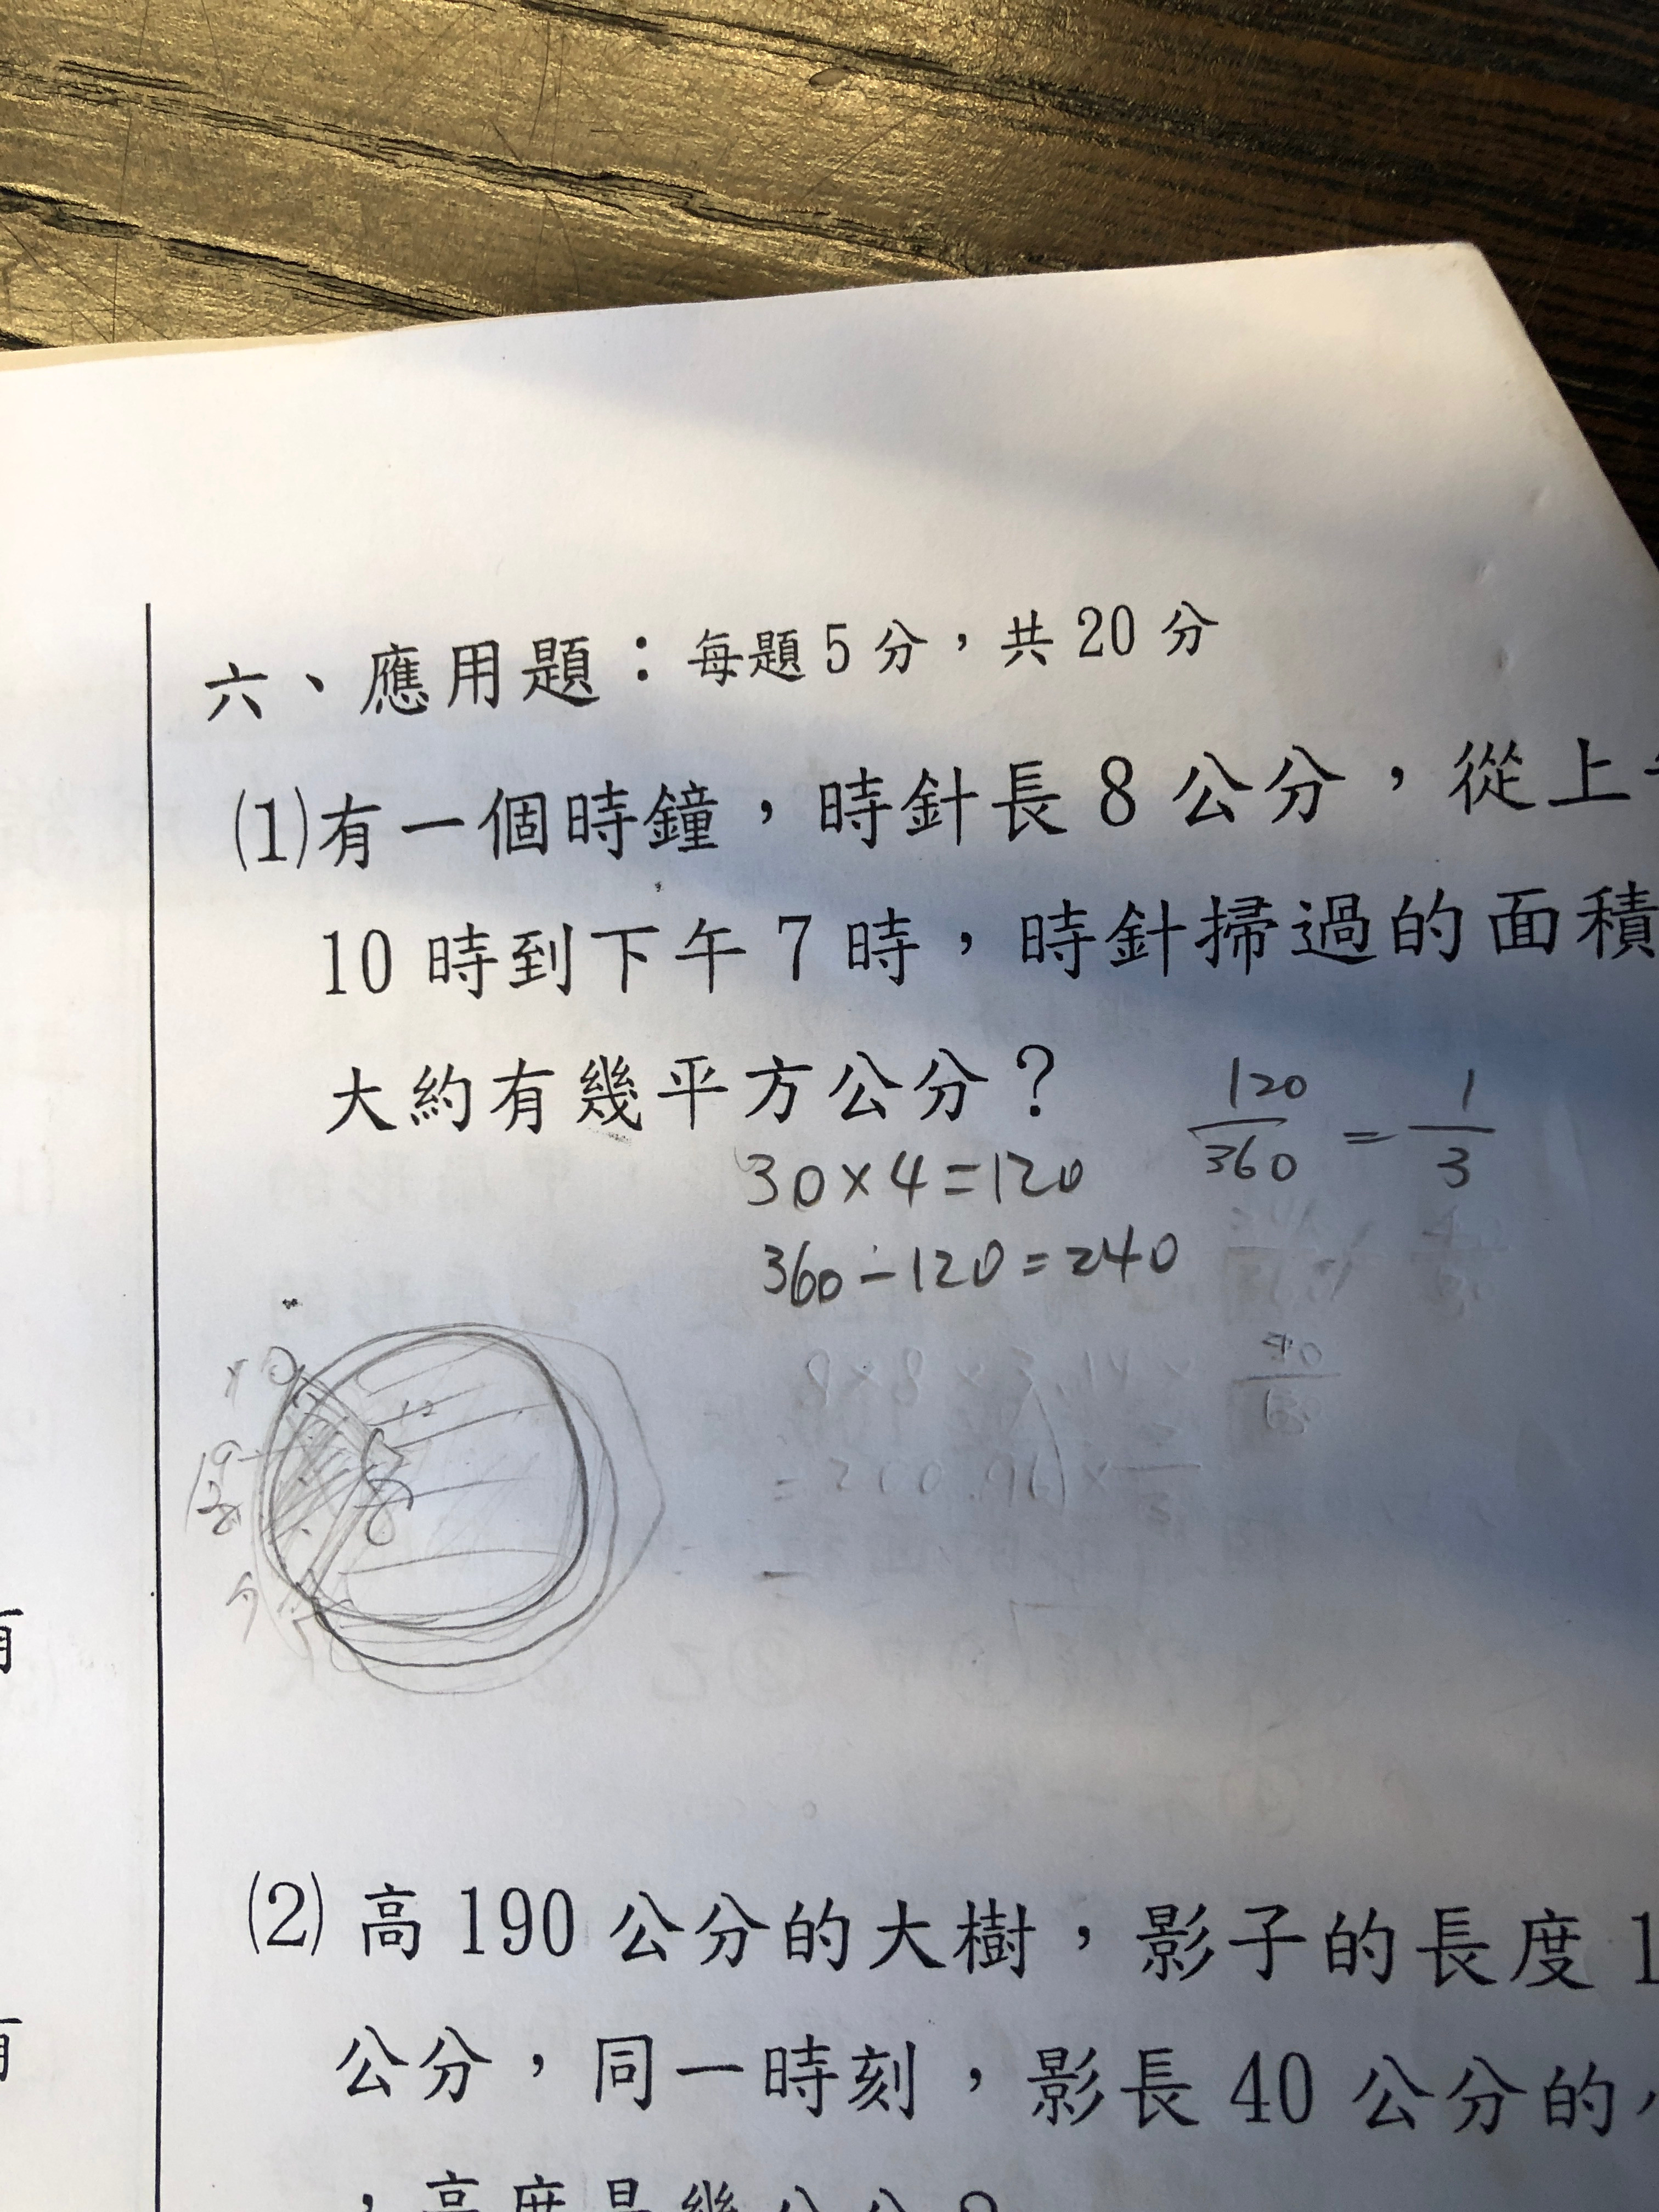 六、應用題：每題5分，共20分
(1)有一個時鐘，時針長8公分，從上
10時到下午7時，時針掃過的面積
大約有幾平方公分？
120/360 = 1/3
30×4=120
360-120=240
8×8×3.14×
=200.96×
10
8
(2)高190公分的大樹，影子的長度1
公分，同一時刻，影長40公分的